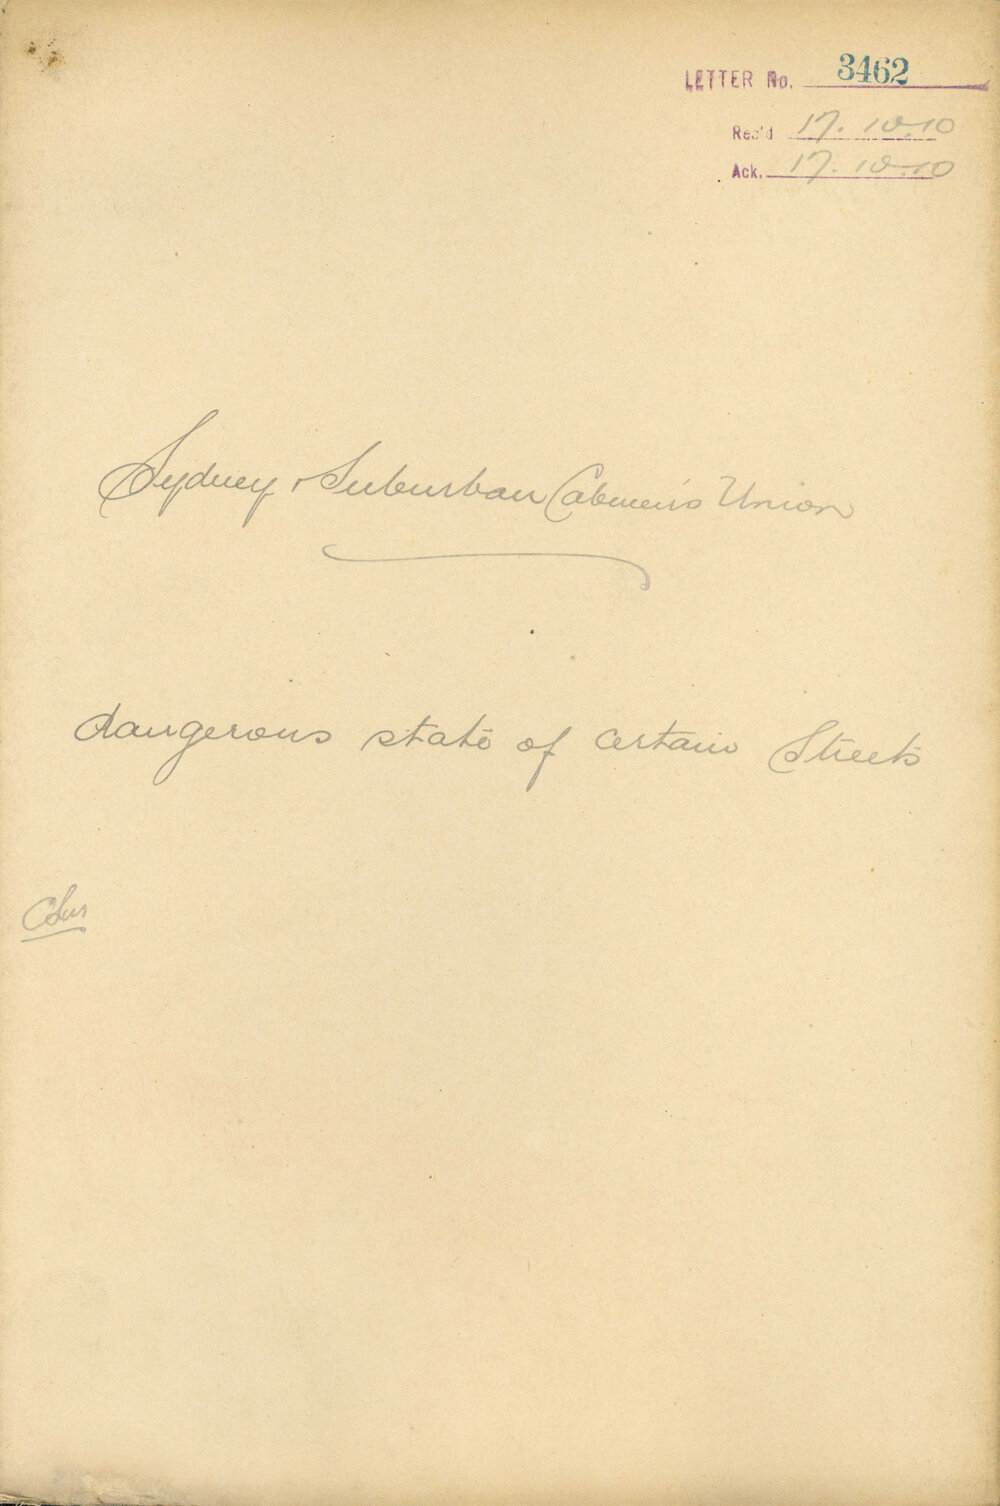 LETTER No. 3462
Rec'd 17.10.10
Ack. 17.10.10
Sydney & Suburban Cabmen's Union
dangerous state of certain Streets